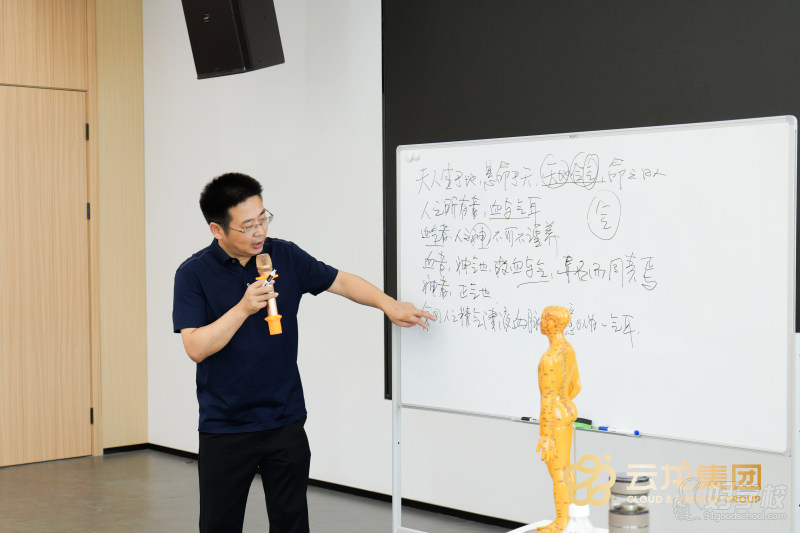 夫人生于地,悬命于天,天地合气,命之曰人
人之所有者,血与气耳
气
血气者,人之神,不可不谨养
血者,神气也,故血与气,异名而同类焉
神者,正气也
余闻人之精气津液血脉 意以为一气耳.
云龙集团
CLOUD & DRAGON GROUP
好学校
51goodschool.com